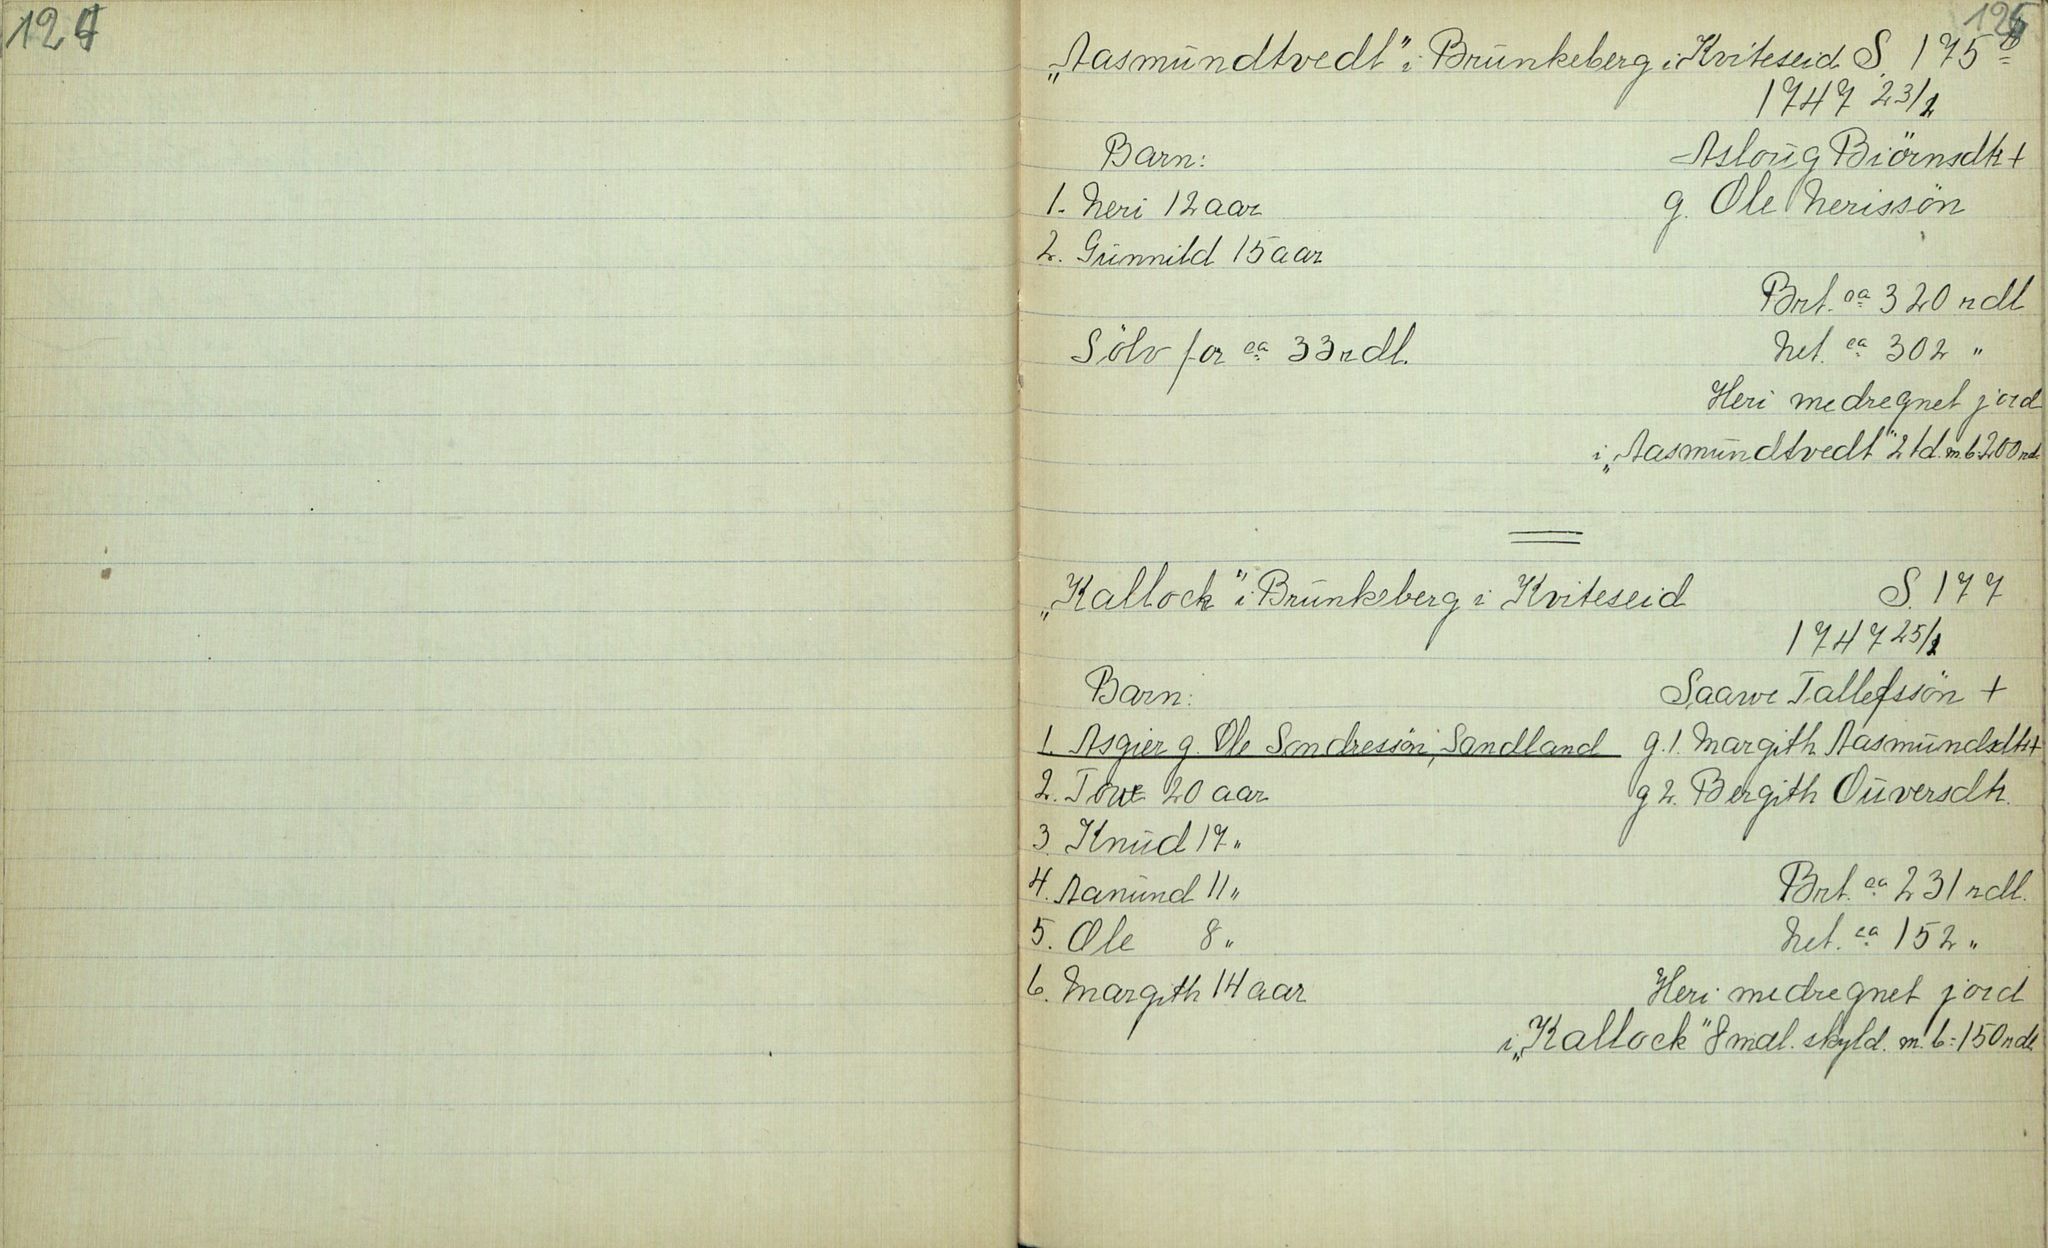 124
125
„Aasmundtvedt" i Brunkeberg i Kviteseid S. 175 b
1747 23/2
Barn: Asloug Biörnsdtr +
1. Neri 12 aar g. Ole Nerissön
2. Gunnild 15 aar
Brt. ca 320 rdl
Sölv for ca 33 rdl. Net. ca 302 "
Heri medregnet jord
i „Aasmundtvedt" 2 td. m. b. 200 rdl.
„Kallock" i Brunkeberg i Kviteseid S. 177
1747 25/2
Barn: Saawe Tallefssön +
1. Asgier g. Ole Sondressön, Sandland g. 1. Margith Aasmundsdtr +
2. Tove 20 aar g 2. Bergith Ouversdtr.
3. Knud 17 "
4. Aanund 11 " Brt. ca 231 rdl.
5. Ole 8 " Net. ca 152 "
6. Margith 14 aar Heri medregnet jord
i „Kallock" 8 mdl. skyld. m. b = 150 rdl